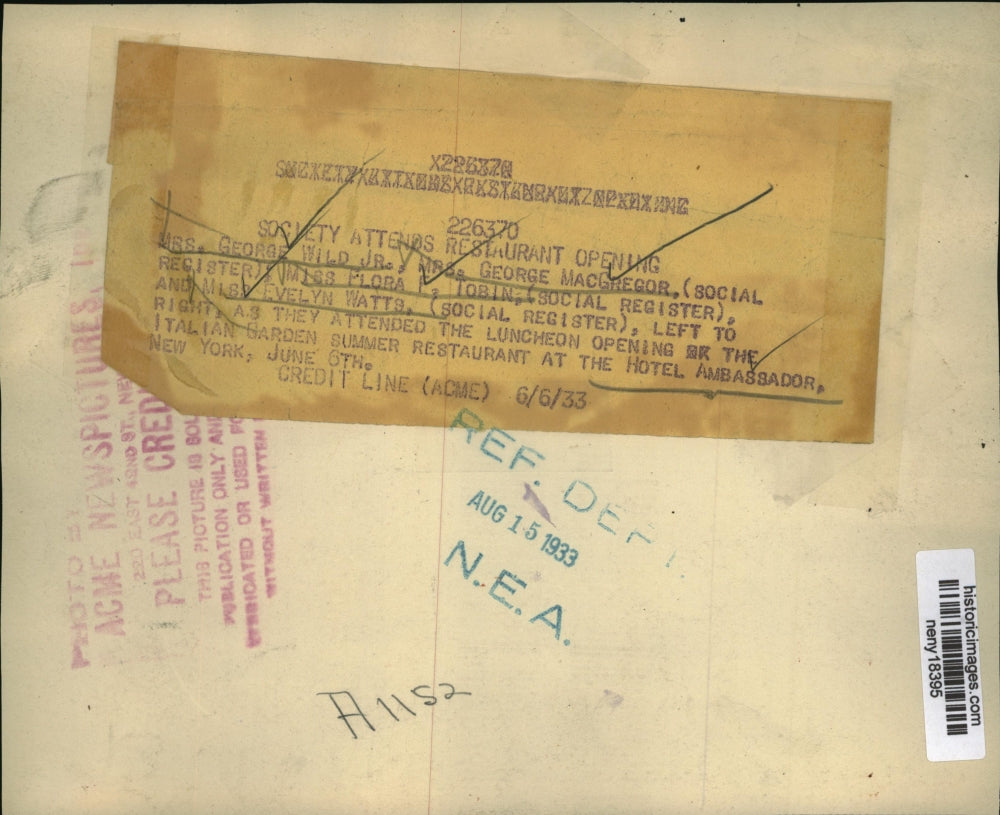 X226370
226370
SOCIETY ATTENDS RESTAURANT OPENING
MRS. GEORGE WILD JR., MRS. GEORGE MACGREGOR, (SOCIAL
REGISTER), MISS FLORA F. TOBIN, (SOCIAL REGISTER),
AND MISS EVELYN WATTS, (SOCIAL REGISTER), LEFT TO
RIGHT, AS THEY ATTENDED THE LUNCHEON OPENING THE
ITALIAN GARDEN SUMMER RESTAURANT AT THE HOTEL AMBASSADOR,
NEW YORK, JUNE 6TH.
CREDIT LINE (ACME) 6/6/33
PHOTO
ACME NEWSPICTURES,
220 EAST 42ND ST., NE
PLEASE CRED
THIS PICTURE IS SOL
PUBLICATION ONLY AN
OR USED FO
WITHOUT WRITTEN
REF. DEPT.
AUG 15 1933
N.E.A.
A1152
historicimages.com
neny18395